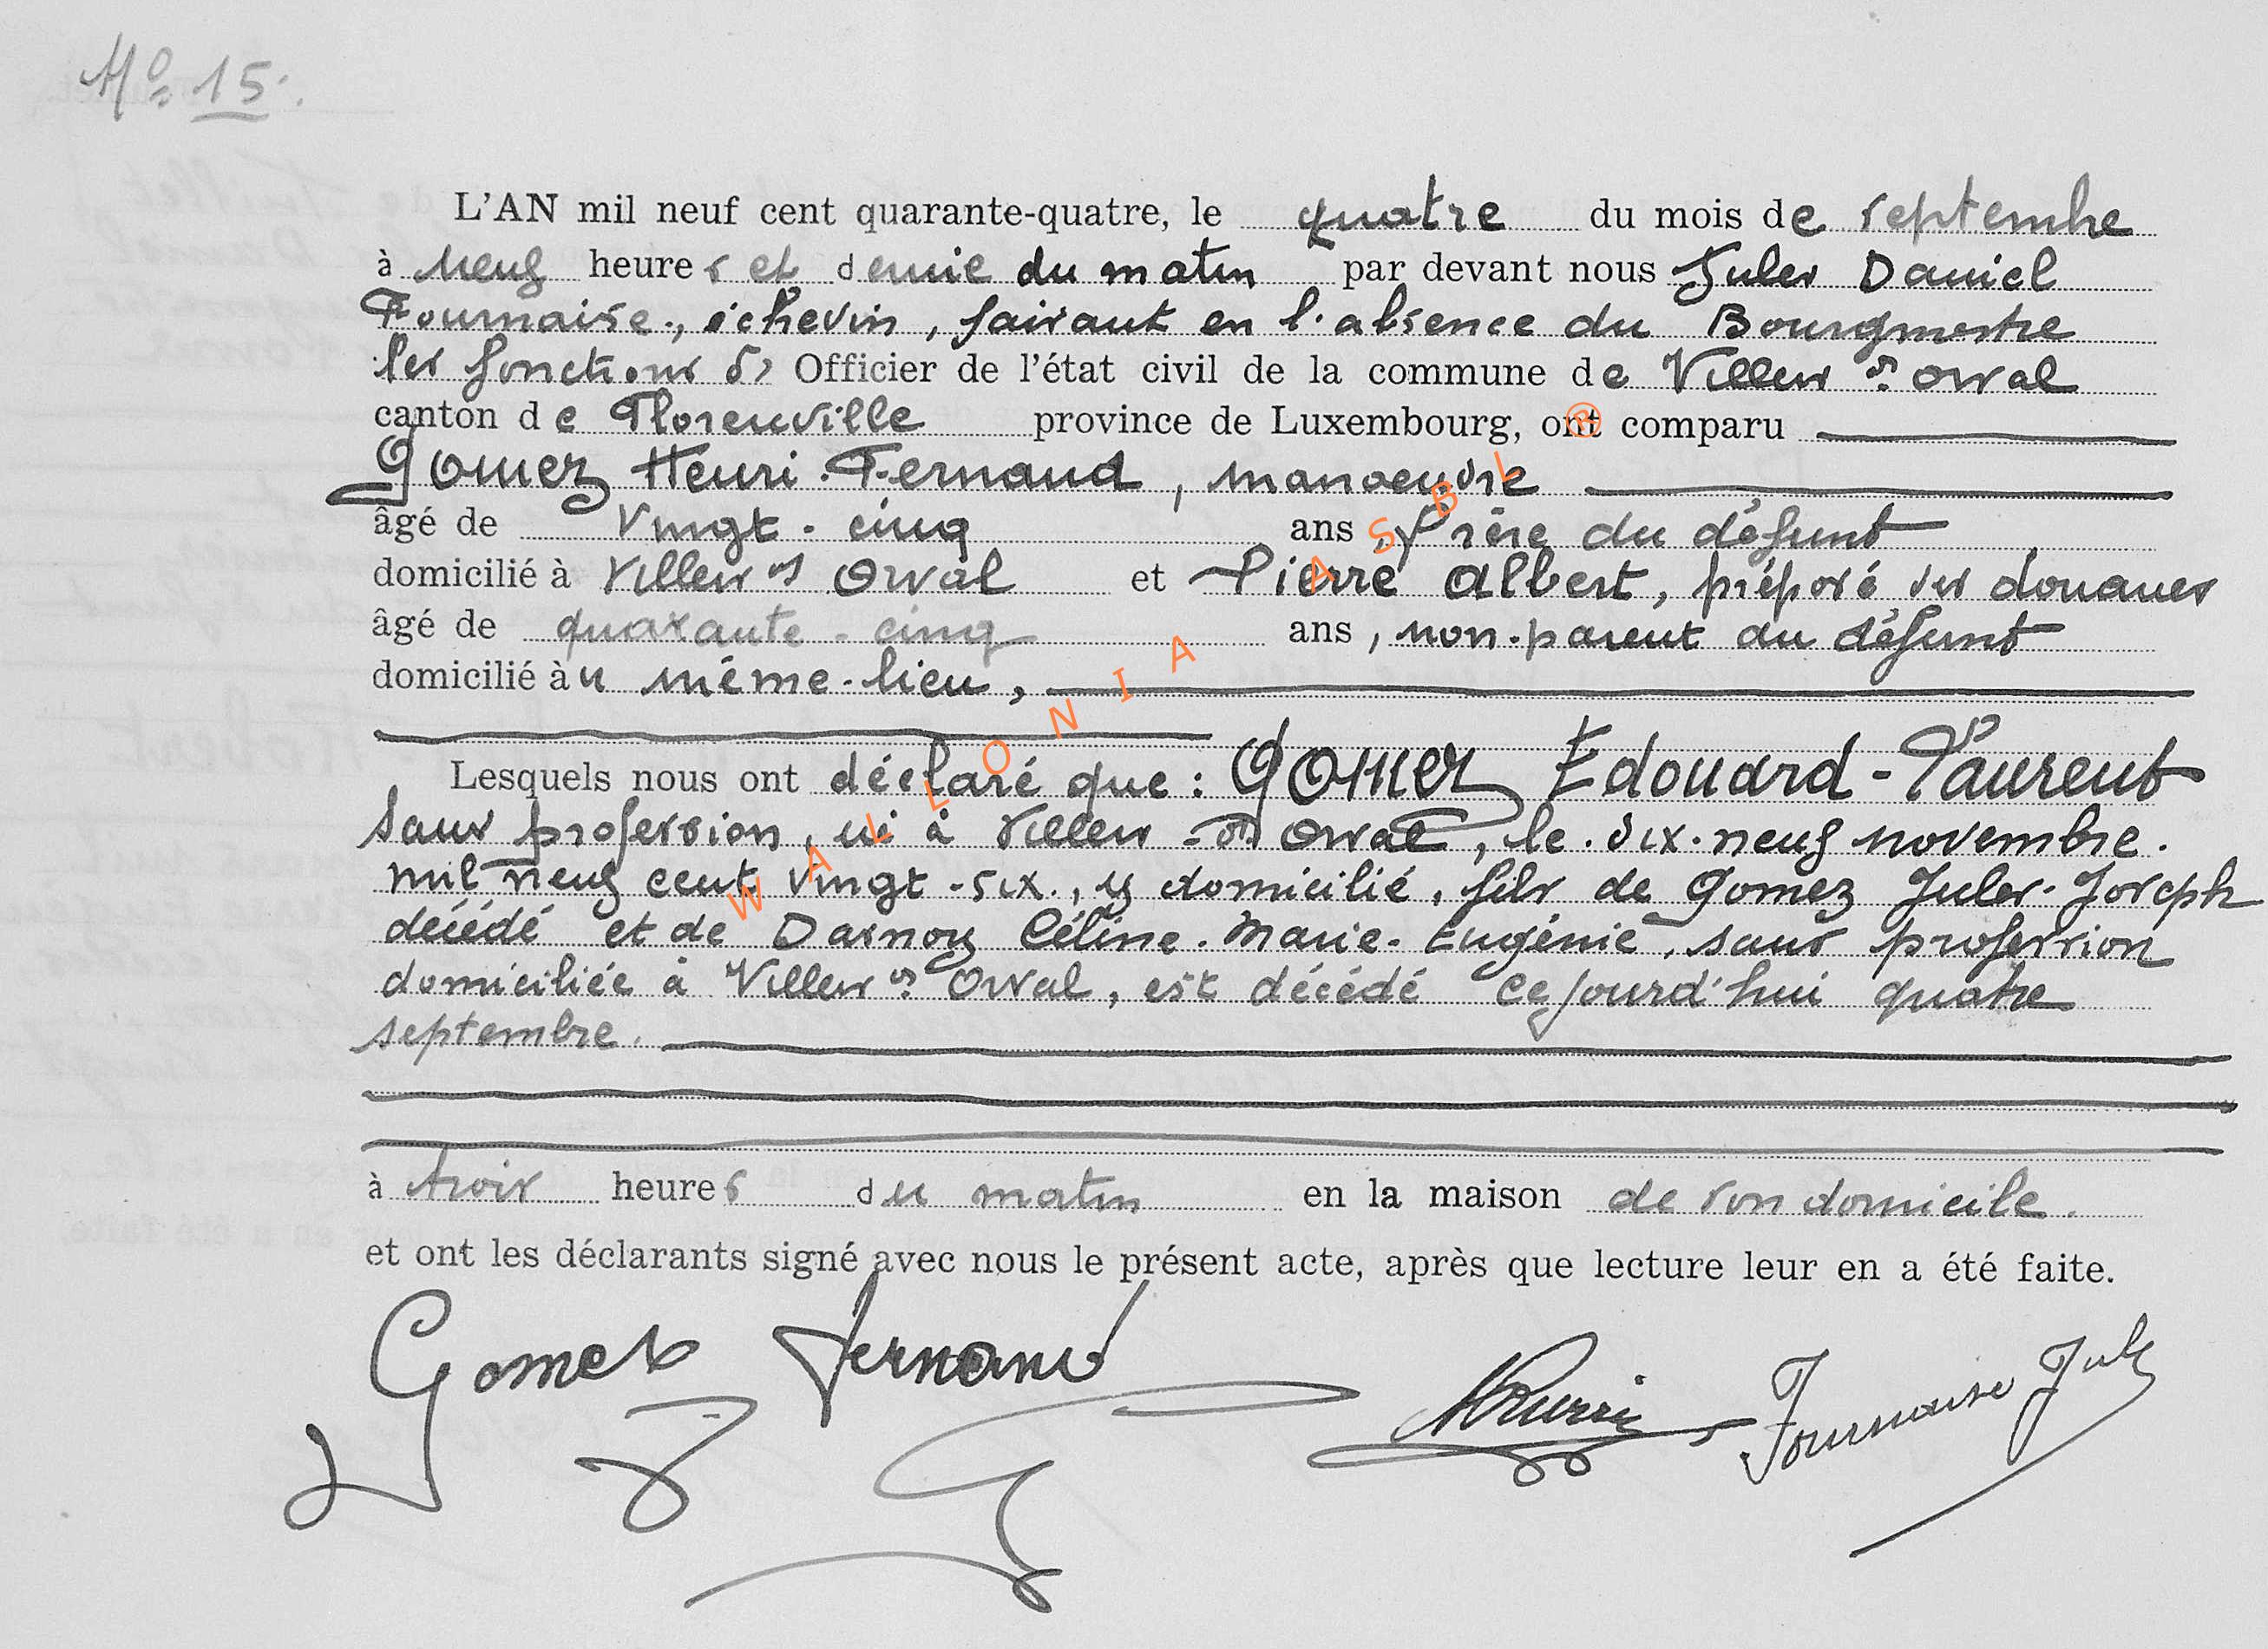 No 15.
L'AN mil neuf cent quarante-quatre, le quatre du mois de septembre
à neuf heures et demie du matin par devant nous Jules Daniel
Fournaise, échevin, faisant en l'absence du Bourgmestre
les fonctions d' Officier de l'état civil de la commune de Villers dt Orval
canton de Florenville province de Luxembourg, ont comparu
Gomez Henri-Fernand, manoeuvre
âgé de vingt-cinq ans, frère du défunt
domicilié à Villers dt Orval et Pierre Albert, préposé des douanes
âgé de quarante-cinq ans, non-parent du défunt
domicilié au même-lieu,
Lesquels nous ont déclaré que : Gomez Edouard-Laurent
sans profession, né à Villers-dt Orval, le dix-neuf novembre
mil neuf cent vingt-six, y domicilié, fils de Gomez Jules-Joseph
décédé et de Darnoy Céline-Marie-Eugénie, sans profession
domiciliée à Villers dt Orval, est décédé cejourd'hui quatre
septembre.
à trois heures du matin en la maison de son domicile.
et ont les déclarants signé avec nous le présent acte, après que lecture leur en a été faite.
Gomez Fernand
Fournaise Jules
WALLONIA ASBL ®